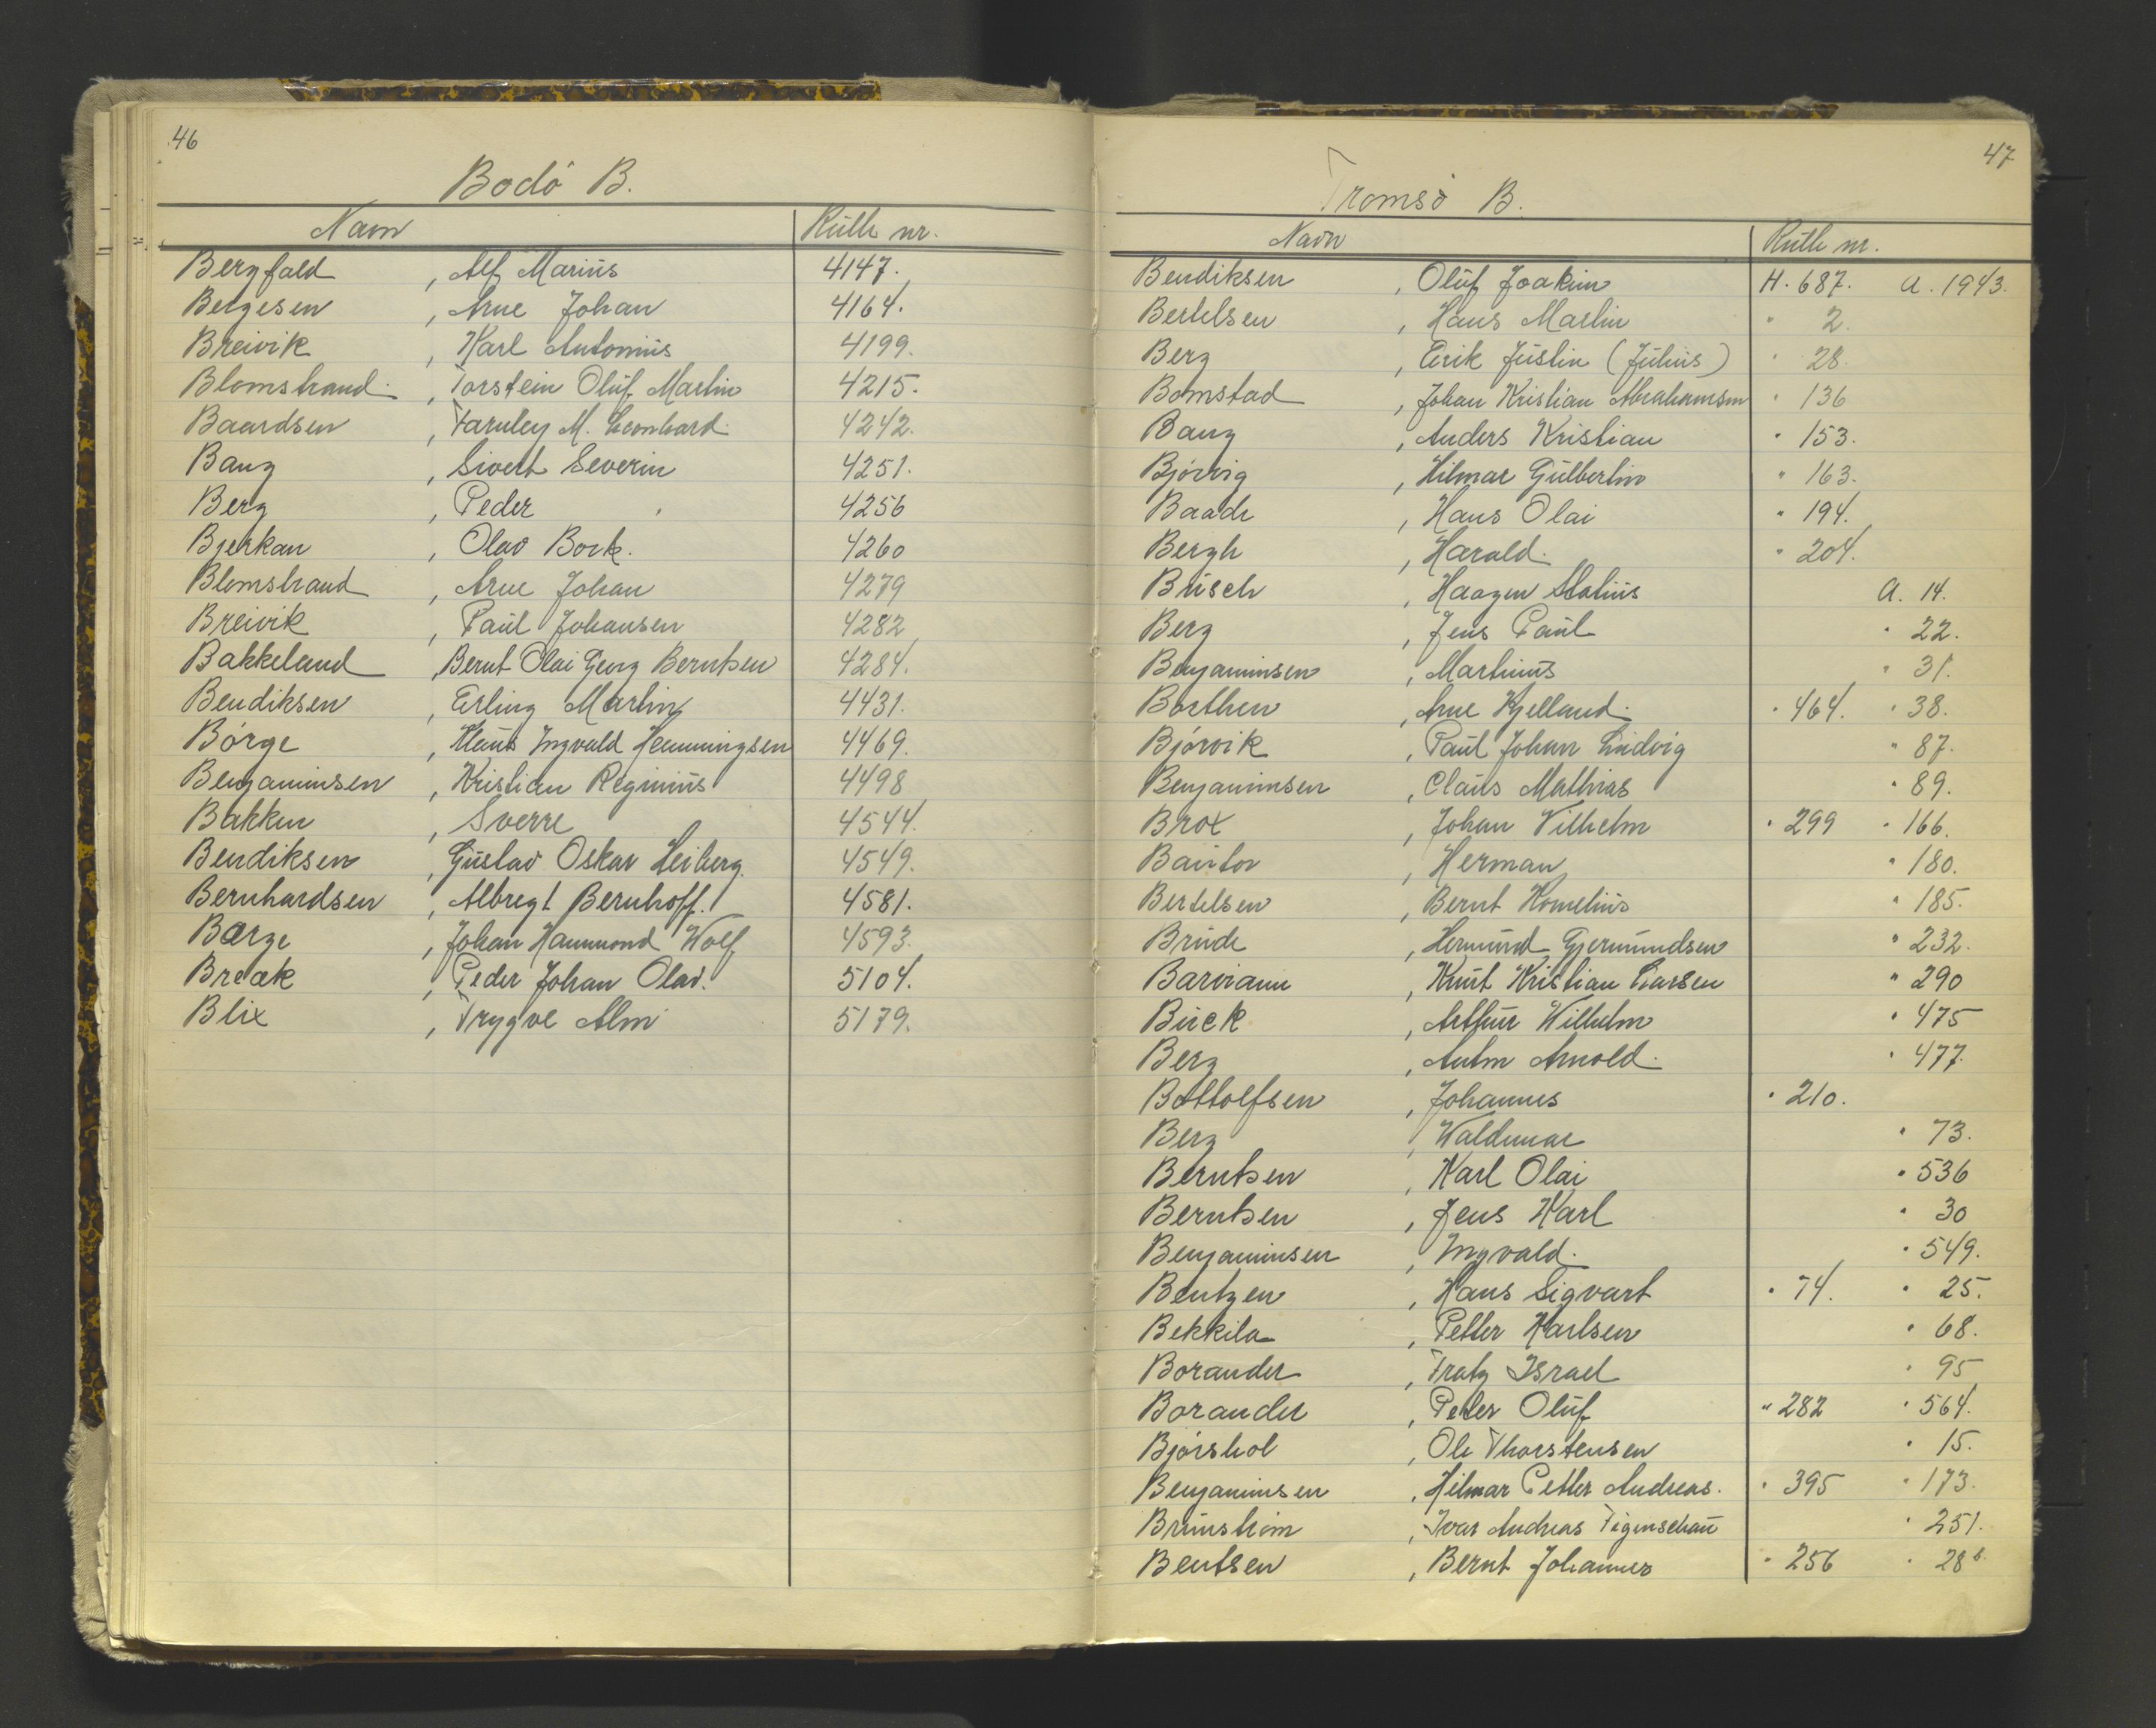 46
Bodø B.
Navn Rulle nr.
Bergfald , Alf Marius 4147.
Bergesen , Arne Johan 4164.
Breivik , Karl Antonius 4199.
Blomstrand , Torstein Oluf Martin 4215.
Baardsen , Farnley M. Leonhard 4242.
Bang , Sivert Severin 4251.
Berg , Peder 4256
Bjerkan , Olav Bock. 4260
Blomstrand , Arne Johan 4279
Breivik , Paul Johansen 4282
Bakkeland , Bernt Olai Georg Berntsen 4284.
Bendiksen , Erling Martin 4431.
Børge , Klaus Ingvald Hemmingsen 4469.
Benjaminsen , Kristian Reginius 4498
Bakken , Sverre 4544.
Bendiksen , Gustav Oskar Heiberg. 4549.
Bernhardsen , Albregt Bernhoff. 4581.
Barge , Johan Hammond Wolf 4593.
Breæk , Peder Johan Olav. 5104.
Blix , Trygve Alm 5179.
47
Tromsø B.
Navn Rulle nr.
Bendiksen , Oluf Joakim H. 687. A. 1943.
Bertelsen , Hans Martin " 2.
Berg , Eirik Justin (Julius) " 28.
Bomstad , Johan Kristian Abrahamsen " 136
Bang , Anders Kristian " 153.
Bjørvig , Hilmar Gulbertin " 163.
Baade , Hans Olai " 194.
Bergh , Harald. " 204.
Busch , Haagen Malius A. 14.
Berg , Jens Paul " 22.
Benjaminsen , Martinus " 31.
Borthen , Arne Kjelland. " 464. " 38.
Bjørvik , Paul Johan Ludvig " 87.
Benjaminsen , Claus Mathias " 89.
Brox , Johan Vilhelm " 299 " 166.
Bautor , Herman " 180.
Bertelsen , Bernt Kornelius " 185.
Brude , Hermund Gjermundsen " 232.
Barviann , Knut Kristian Larsen " 290
Buck , Arthur Wilhelm " 475
Berg , Anton Arnold. " 477.
Bottolfsen , Johannes " 210.
Berg , Waldemar " 73.
Berntsen , Karl Olai " 536
Berntsen , Jens Karl " 30
Benjaminsen , Ingvald. " 549.
Bentzen , Hans Sigvart " 74. " 25.
Bekkila , Petter Karlsen " 68.
Borander , Fratz Israel " 95
Borander , Peder Oluf " 282 " 564.
Bjørshol , Ole Thorstensen " 15.
Benjaminsen , Hilmar Petter Andreas. " 395 " 173.
Brunstrøm , Ivar Andreas Figenschau " 251.
Bentsen , Bernt Johannes " 256 " 286.